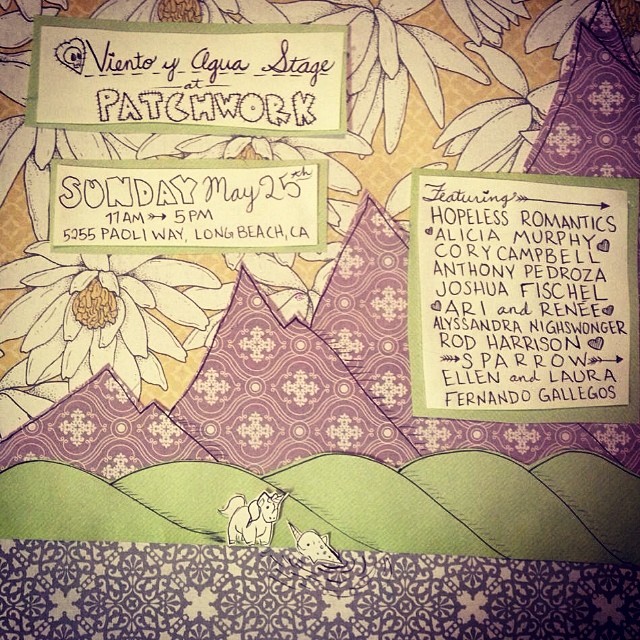 Viento y Agua Stage
at
PATCHWORK
SUNDAY May 25th
11AM 5PM
5255 PAOLI WAY, LONG BEACH, CA
Featuring
HOPELESS ROMANTICS
ALICIA MURPHY
CORY CAMPBELL
ANTHONY PEDROZA
JOSHUA FISCHEL
ARI and RENÉE
ALYSSANDRA NIGHSWONGER
ROD HARRISON
SPARROW
ELLEN and LAURA
FERNANDO GALLEGOS